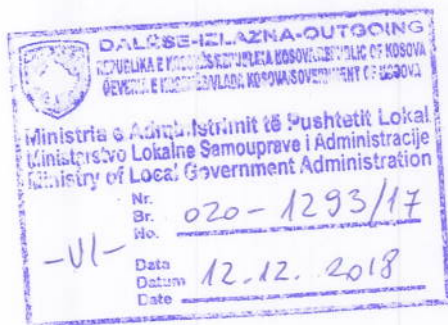 DALËSE-IZLAZNA-OUTGOING
REPUBLIKA E KOSOVËS/REPUBLIKA KOSOVA/REPUBLIC OF KOSOVA
QEVERIA E KOSOVËS/VLADA KOSOVA/GOVERNMENT OF KOSOVA
Ministria e Administrimit të Pushtetit Lokal
Ministarstvo Lokalne Samouprave i Administracije
Ministry of Local Government Administration
Nr.
Br. 020-1293/17
No.
-VI-
Data
Datum 12.12.2018
Date